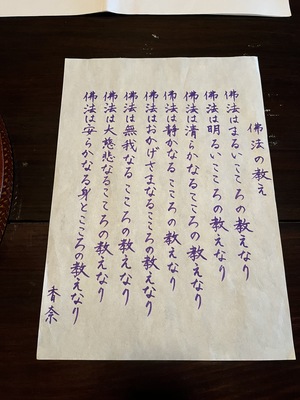 佛法の教え
佛法はまるいこころの教えなり
佛法は明るいこころの教えなり
佛法は清らかなるこころの教えなり
佛法は静かなるこころの教えなり
佛法はおかげさまなるこころの教えなり
佛法は無我なるこころの教えなり
佛法は大慈悲なるこころの教えなり
佛法は安らかなる身とこころの教えなり
香奈